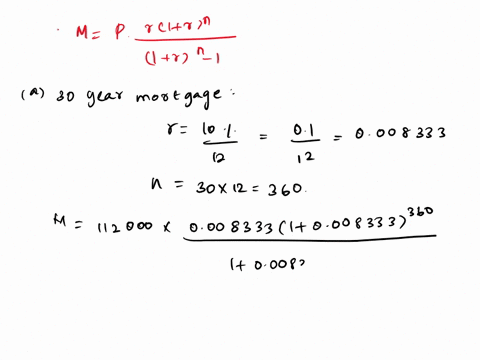 M = P. r(1+r)^n / (1+r)^n -1
(a) 30 year mortgage:
r = 10% / 12 = 0.1 / 12 = 0.008333
n = 30 x 12 = 360.
M = 112000 x 0.008333 (1+ 0.008333)^360 / 1+ 0.008